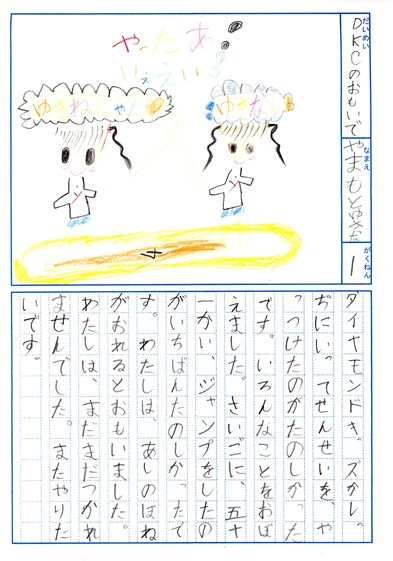 だいめい
DKCのおもいで
なまえ
やまもとゆきな
がくねん
1
やったあ!!
いぇえい!
ゆきねえちゃん
ゆきな
ダイヤモンドキッズカレッ
ぢにいってせんせいを、や
っつけたのがたのしかった
です。いろんなことをおぼ
えました。さいごに、五十
一かい、ジャンプをしたの
がいちばんたのしかったで
す。わたしは、あしのほね
がおれるとおもいました。
わたしは、まだまだつかれ
ませんでした。またやりた
いです。